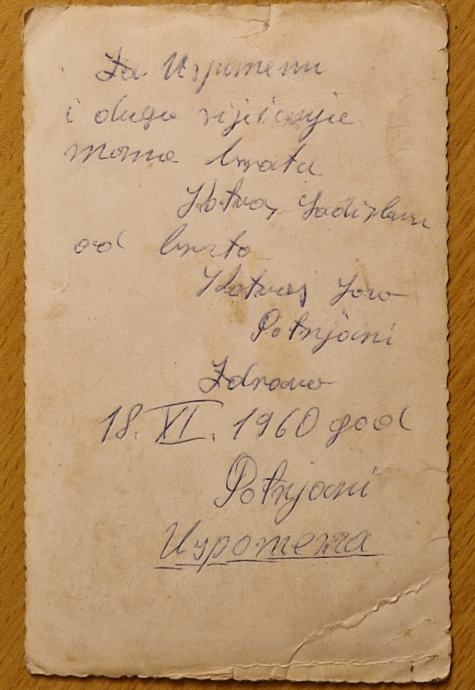 Za Uspomenu
i dugo sijećanje
mome bratu
Kotvaj Ladislavu
od brata
Kotvaj Jovo
Potnjani
Zdravo
18. XI. 1960 god
Potnjani
Uspomena